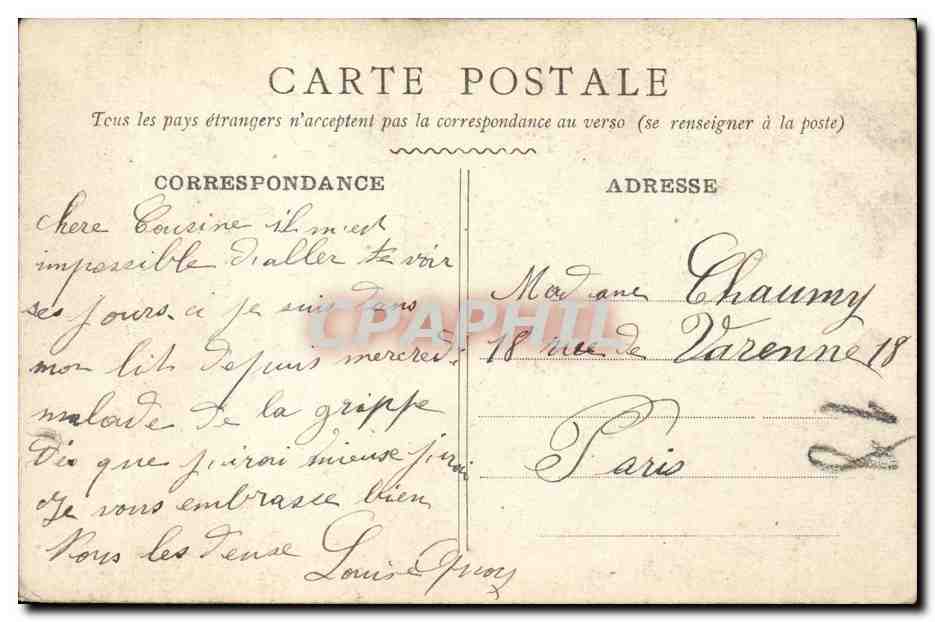 CARTE POSTALE
Tous les pays étrangers n'acceptent pas la correspondance au verso (se renseigner à la poste)
CORRESPONDANCE
chere Cousine il m'est
impossible d'aller te voir
ses jours ci je suis dans
mon lit depuis mercredi
malade de la grippe
Dè que j'irai mieuse j'irai
Je vous embrasse bien
Vous les deuse
Louise
ADRESSE
Madame Chaumy
18 rue de Varenne 18
Paris
CPAPHIL